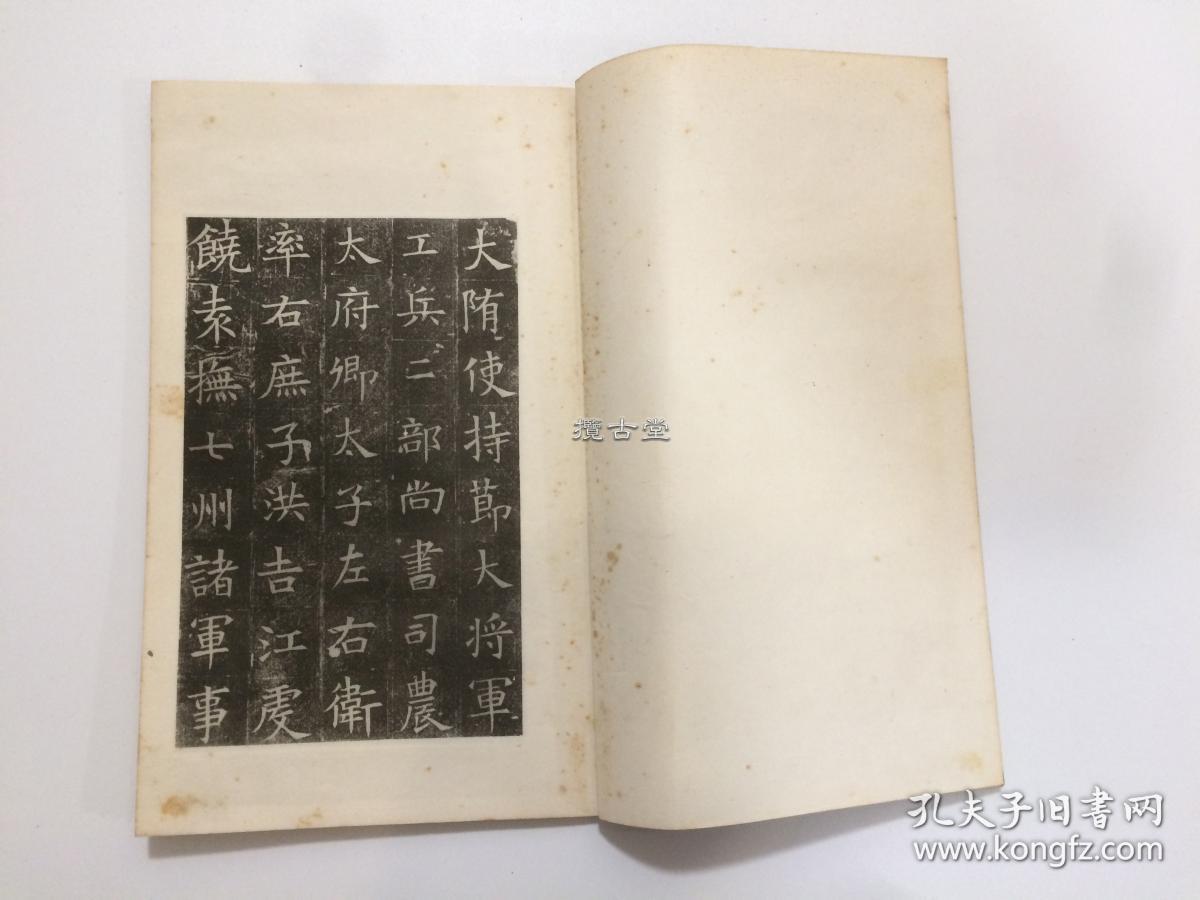 大隋使持節大将軍
工兵二部尚書司農
太府卿太子左右衛
率右庶子洪吉江虔
饒袁撫七州諸軍事
攬古堂
孔夫子旧書网
www.kongfz.com